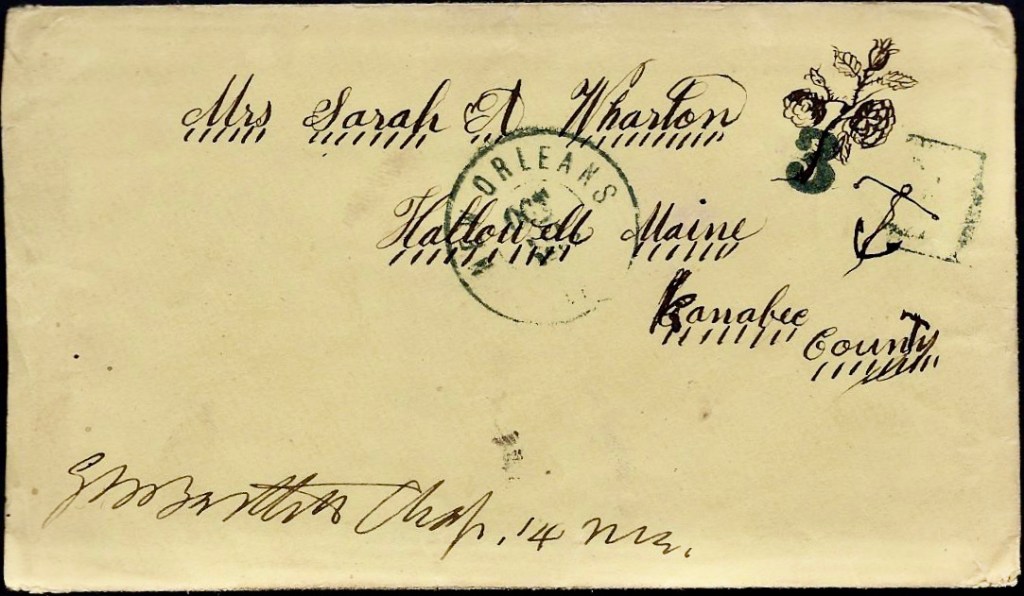 Mrs Sarah A Wharton
3
NEW ORLEANS
OCT
Hallowell Maine
Kanabec
County
Geo W Bartlett Chap. 14 Me.